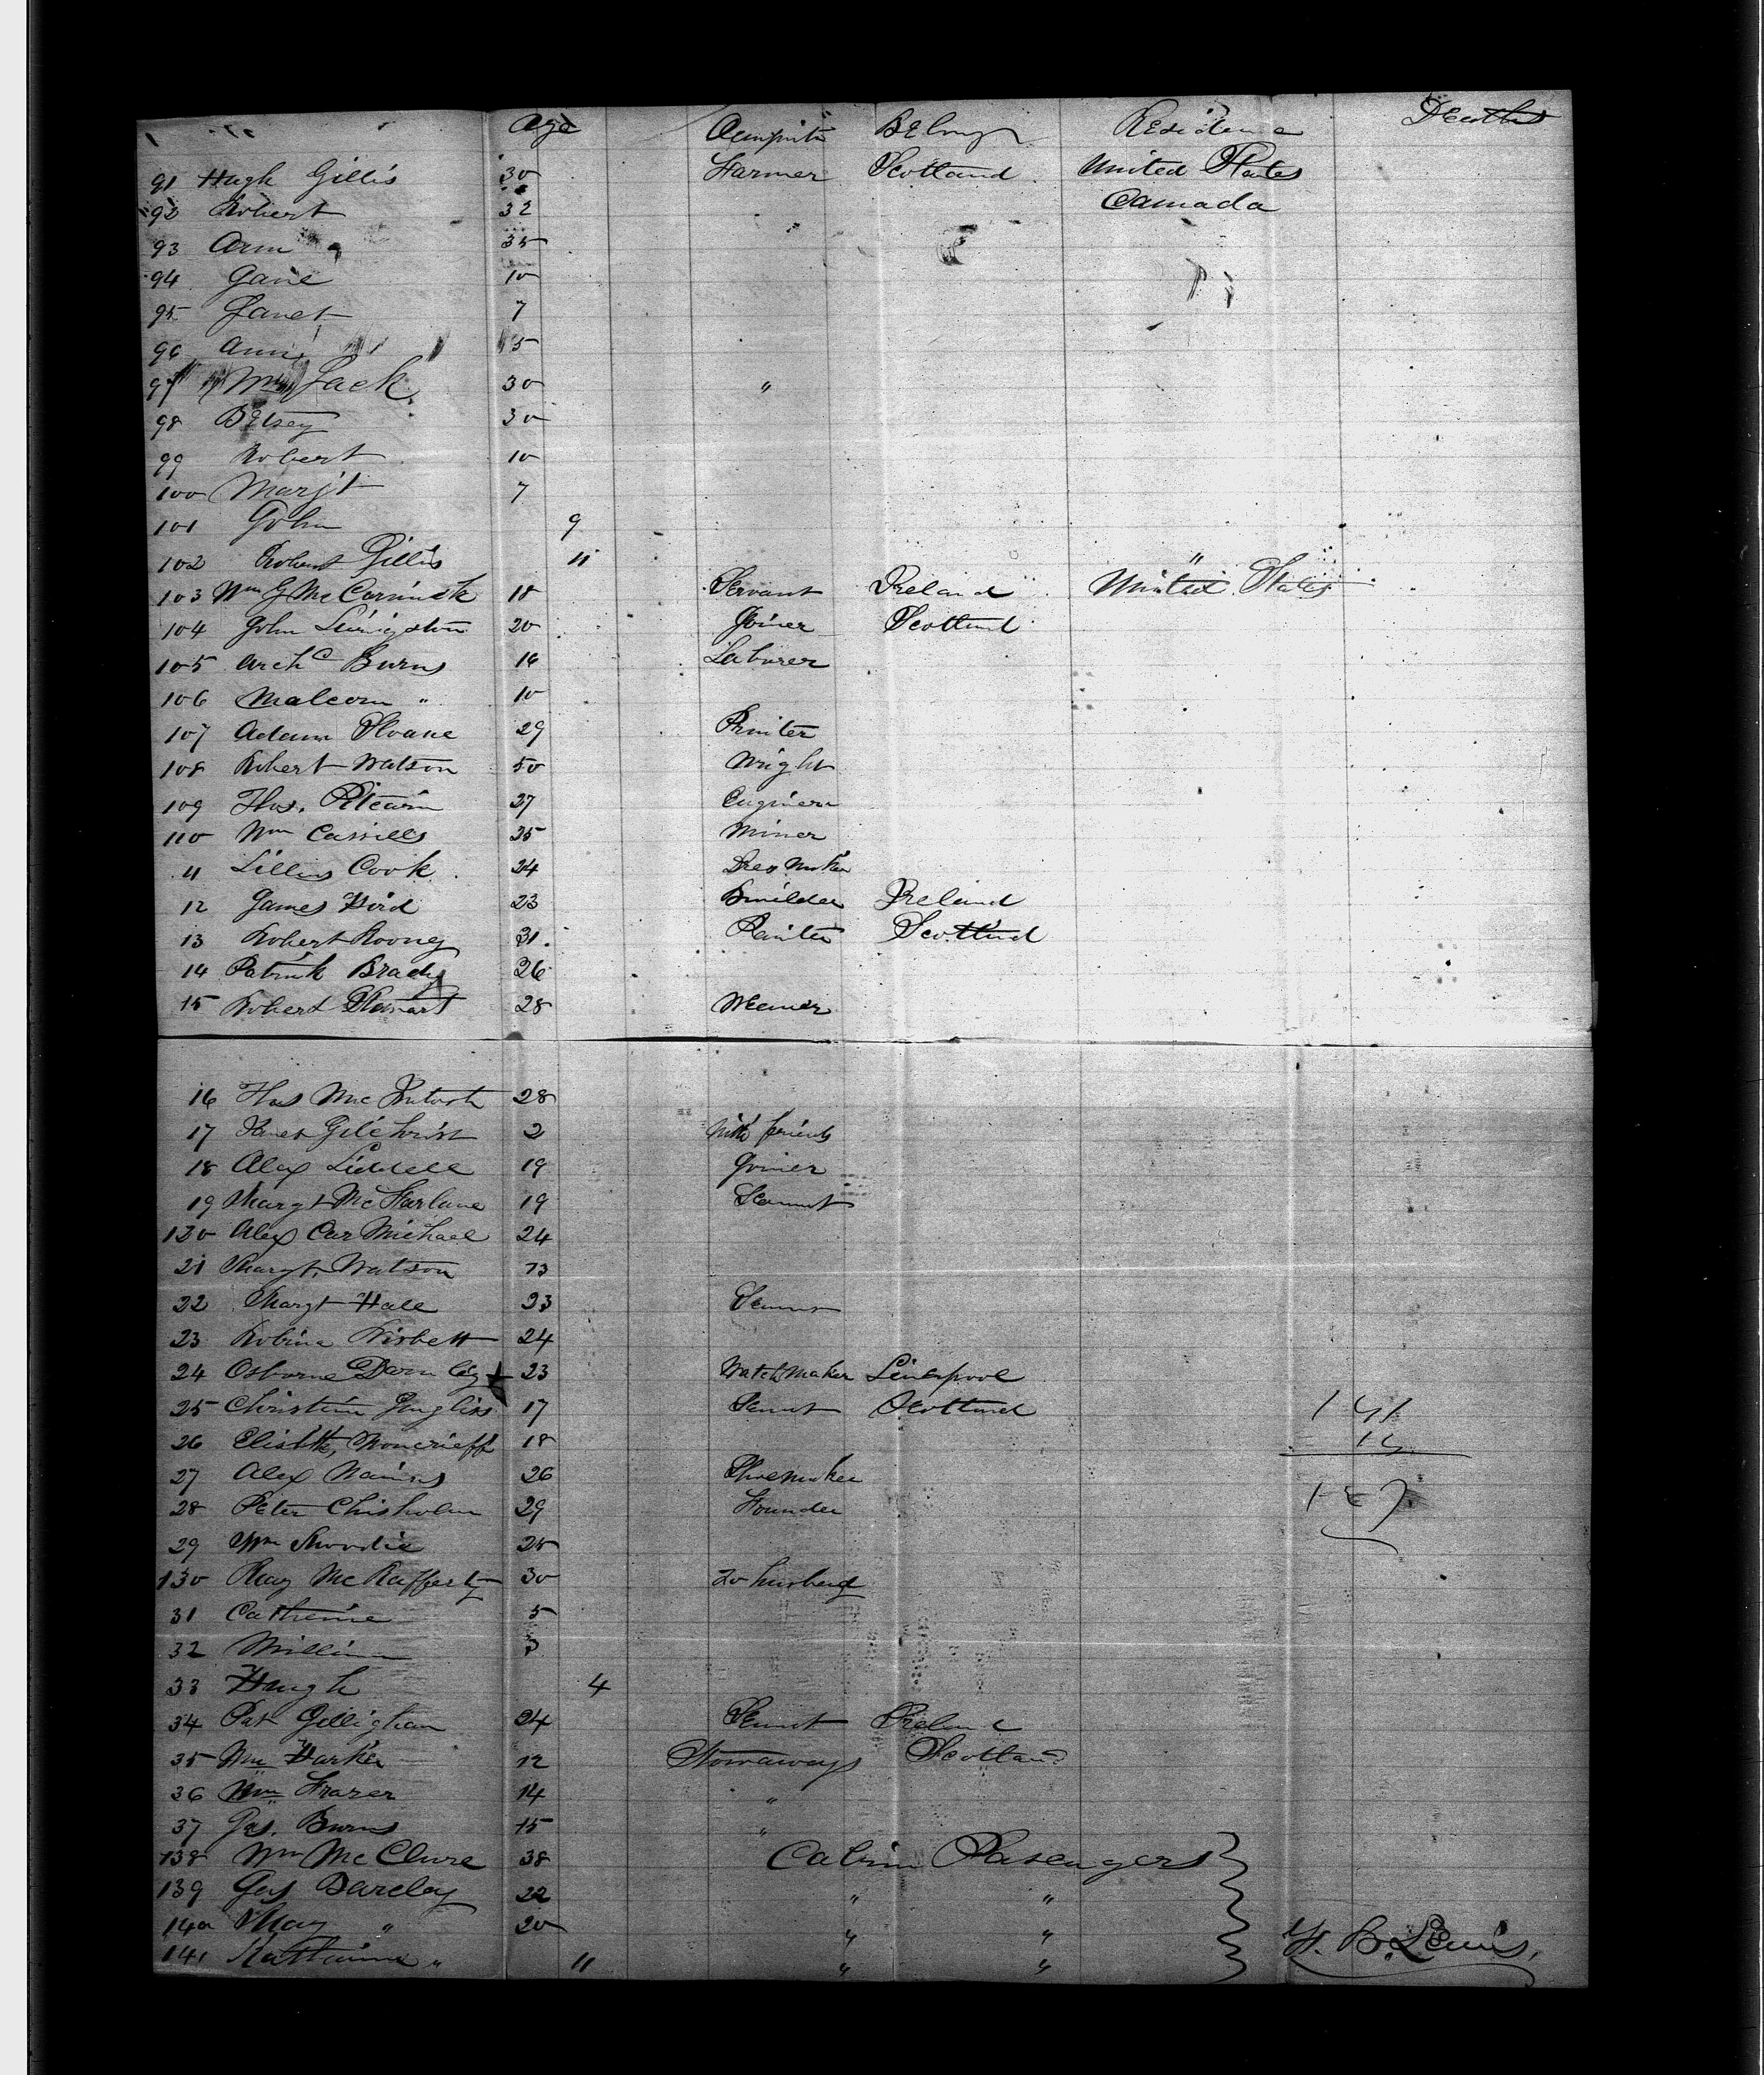 Age Occupatn Belong Residence Deaths
91 Hugh Gillis 30 Farmer Scotland United States
92 Robert 32 Canada
93 Ann 35
94 Jane 10
95 Janet 7
96 Ann 5
97 Wm Jack 30 "
98 Betsey 30
99 Robert 10
100 Margt 7
101 John 9
102 Robert Gillis 11 "
103 Wm McCormick 18 Servant Ireland United States
104 John Livingston 20 Joiner Scotland
105 Archd Burns 16 Laborer
106 Malcom " 10
107 Adam Sloane 29 Printer
108 Robert Watson 50 Wright
109 Thos. Pitcairn 27 Engineer
110 Wm Cassills 35 Miner
11 Lillias Cook 24 Dress Maker
12 James Ford 23 Builder Ireland
13 Robert Rooney 31. Painter Scotland
14 Patrick Brady 26
15 Robert Stewart 28 Weaver
16 Thos McIntosh 28
17 Janet Gilchrist 2 With friends
18 Alex Liddell 19 Joiner
19 Margt McFarlane 19 Servant
120 Alex CarMichael 24
21 Margt. Watson 73
22 Margt Hall 23 Servant
23 Robina Nisbett 24
24 Osborne 23 Watch Maker Liverpool
25 Christina 17 Servant Scotland 141
26 Elisbth, Moncrieff 18
27 Alex Nairns 26 Shoemaker
28 Peter Chisholm 29 Founder
29 Wm Moodie 25
130 Mary McRafferty 30 To husband
31 Catherine 5
32 William 3
33 Haugh 4
34 Pat Gilligham 24 Servant Ireland
35 Wm Harker 12 Stowaways Scotland
36 Wm Frazer 14 "
37 Jas. Burns 15 "
138 Wm McClure 38 Cabin Passengers
139 Jas Barclay 22 " "
140 Mary " 20 " "
141 Katharine " 11 " " B. Lewis,